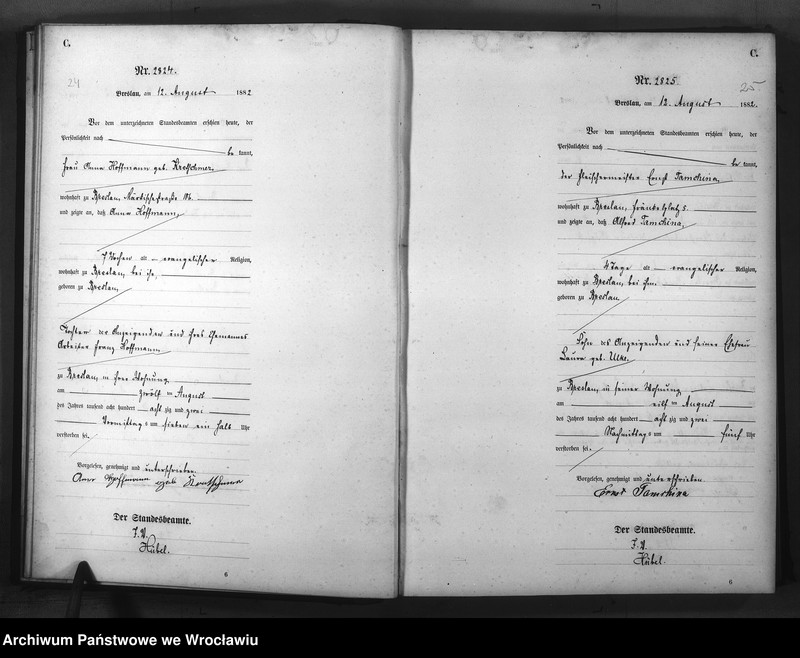 C.
24
Nr. 2824.
Breslau, am 12. August 1882
Vor dem unterzeichneten Standesbeamten erschien heute, der
Persönlichkeit nach
be kannt,
Frau Anna Hoffmann geb. Kretschmer,
wohnhaft zu Breslau, Märkischestraße
und zeigte an, daß Anna Hoffmann,
7 Wochen alt – evangelischer Religion,
wohnhaft zu Breslau, bei ihr,
geboren zu Breslau,
Tochter der Anzeigenden und ihres Ehemannes
Arbeiter Franz Hoffmann
zu Breslau, in ihrer Wohnung
am zwölf ten August
des Jahres tausend acht hundert acht zig und zwei
Vormittags um sieben ein halb Uhr
verstorben sei.
Vorgelesen, genehmigt und unterschrieben.
Anna Hoffmann geb Kretschmer
Der Standesbeamte.
I. V.
Hübel.
6
C.
25
Nr. 2825.
Breslau, am 12. August 1882.
Vor dem unterzeichneten Standesbeamten erschien heute, der
Persönlichkeit nach
be kannt,
der Fleischermeister Ernst Tamchina,
wohnhaft zu Breslau, Fränkelplatz 5.
und zeigte an, daß Alfred Tamchina,
4 Tage alt – evangelischer Religion,
wohnhaft zu Breslau, bei ihm.
geboren zu Breslau
Sohn des Anzeigenden und seiner Ehefrau
Laura geb. Ulke,
zu Breslau, in seiner Wohnung
am eilf ten August
des Jahres tausend acht hundert acht zig und zwei
Nachmittags um fünf Uhr
verstorben sei.
Vorgelesen, genehmigt und unterschrieben.
Ernst Tamchina
Der Standesbeamte.
I. V.
Hübel.
6
Archiwum Państwowe we Wrocławiu